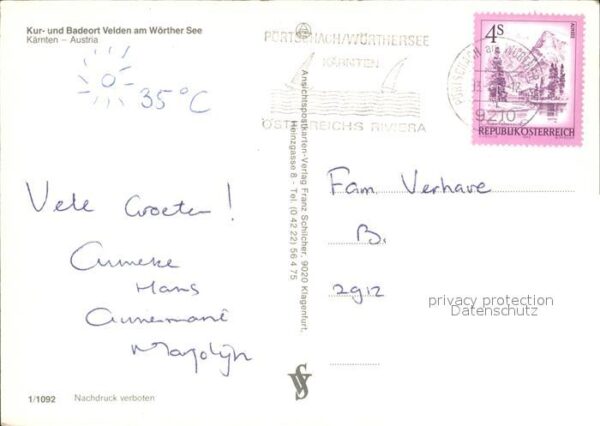 Kur- und Badeort Velden am Wörther See
Kärnten – Austria
35°C
Vele Groeten!
Anneke
Hans
Annemarie
Marjolijn
1/1092 Nachdruck verboten
Ansichtspostkarten-Verlag Franz Schilcher, 9020 Klagenfurt,
Heinzgasse 8 - Tel. (0 42 22) 56 4 75
PÖRTSCHACH/WÖRTHERSEE
KÄRNTEN
ÖSTERREICHS RIVIERA
9210
4S
REPUBLIK ÖSTERREICH
Fam. Verhave
B.
2912
privacy protection
Datenschutz